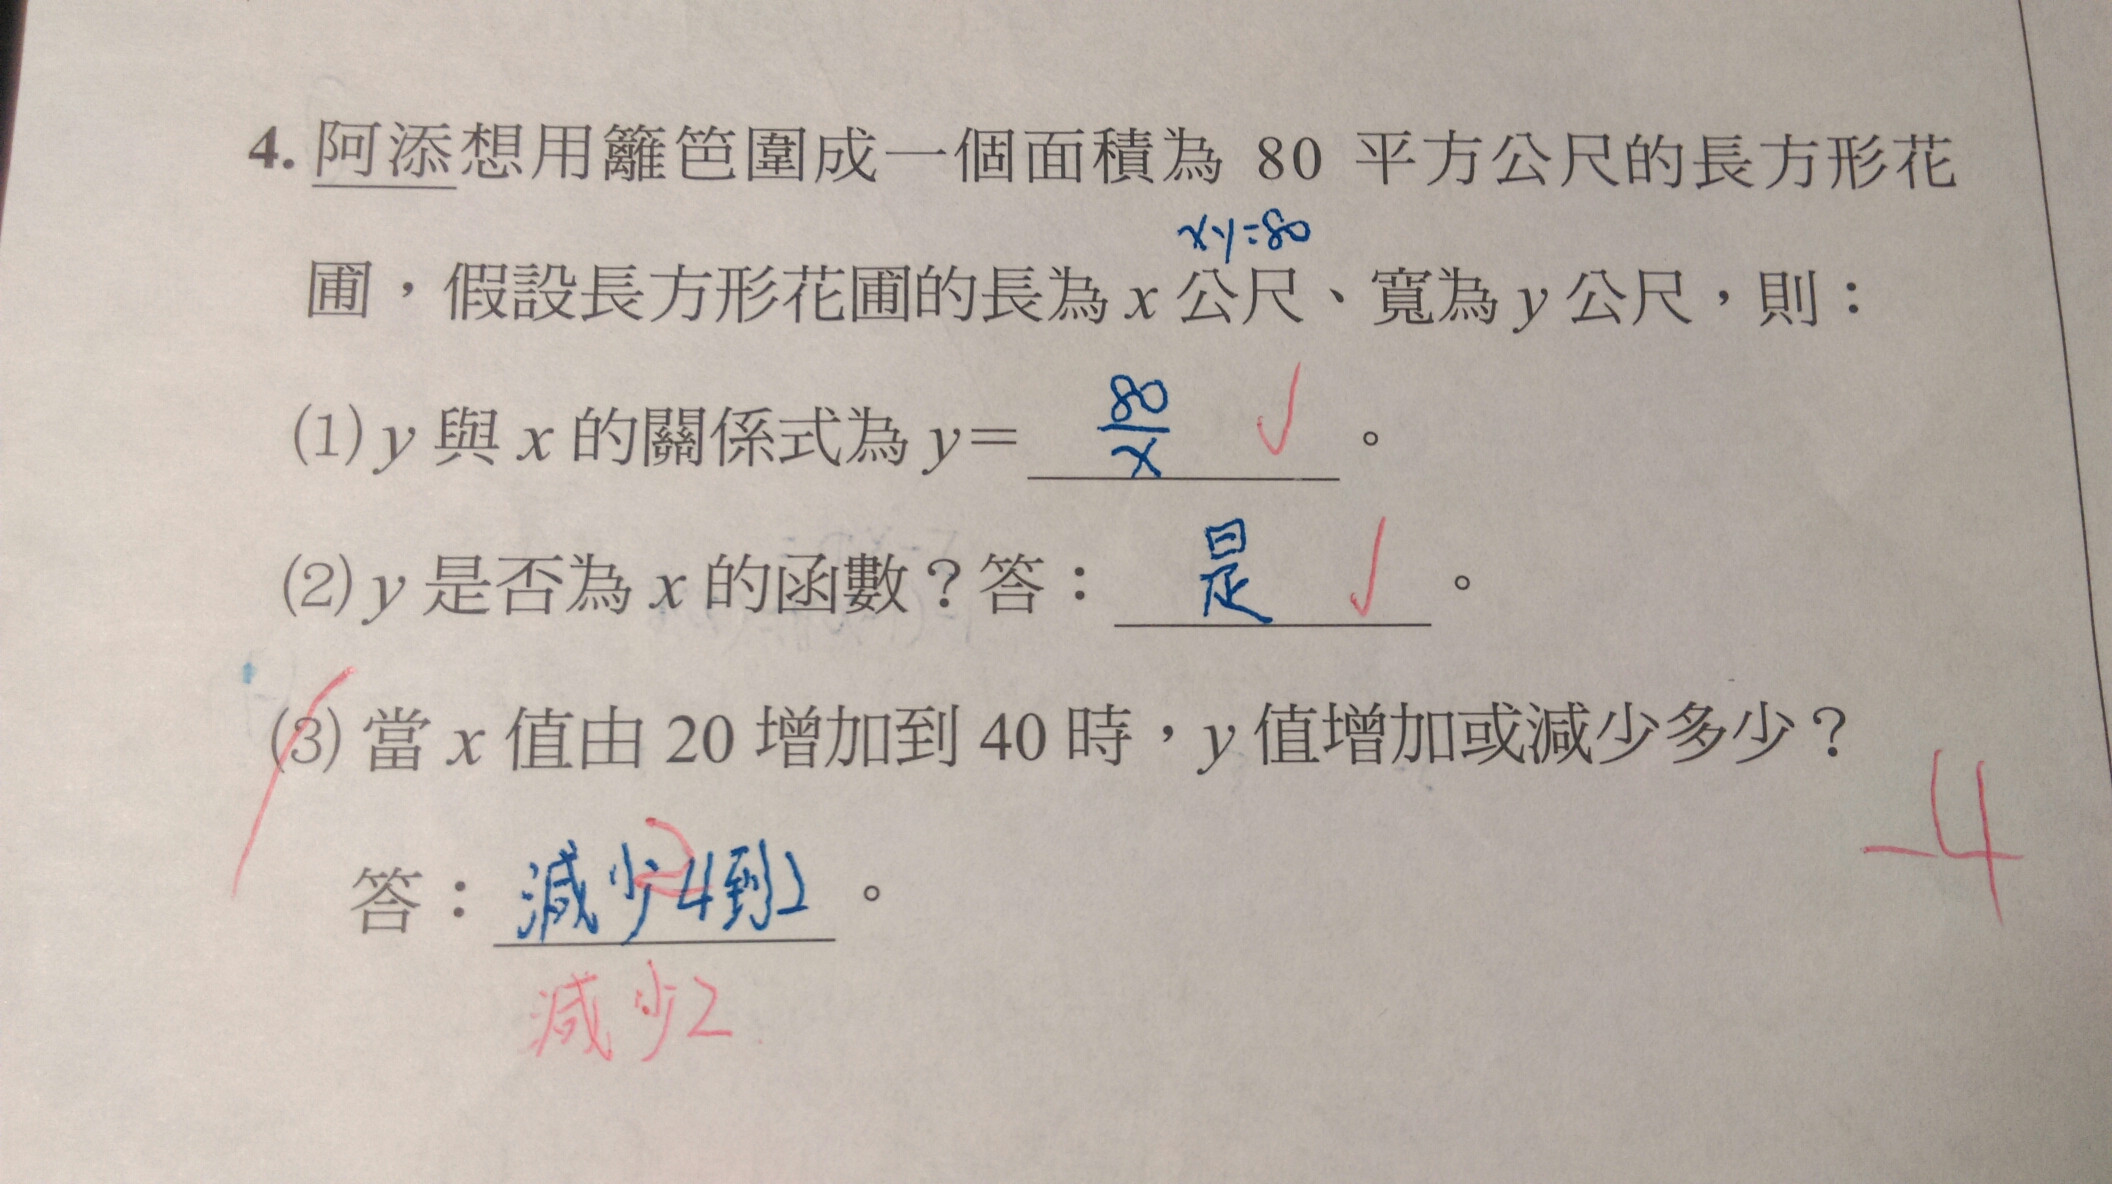 4. 阿添想用籬笆圍成一個面積為 80 平方公尺的長方形花
xy=80
圃，假設長方形花圃的長為 x 公尺、寬為 y 公尺，則：
(1) y 與 x 的關係式為 y＝ 80/x ✓ 。
(2) y 是否為 x 的函數？答： 是 ✓ 。
(3) 當 x 值由 20 增加到 40 時，y 值增加或減少多少？
-4
答： 減少4到2 。
減少2